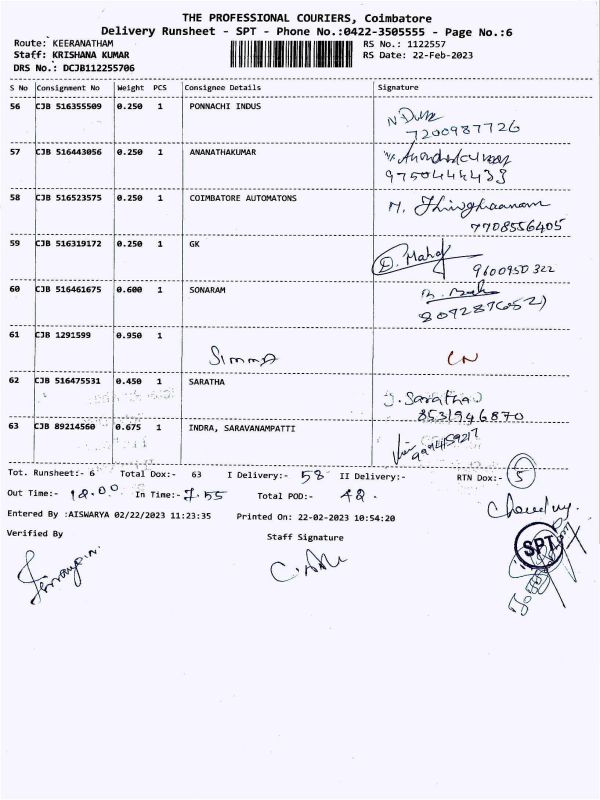 THE PROFESSIONAL COURIERS, Coimbatore
Delivery Runsheet - SPT - Phone No.:0422-3505555 - Page No.:6
Route: KEERANATHAM RS No.: 1122557
Staff: KRISHANA KUMAR RS Date: 22-Feb-2023
DRS No.: DCJB112255706
S No Consignment No Weight PCS Consignee Details Signature
56 CJB 516355509 0.250 1 PONNACHI INDUS
7200987726
57 CJB 516443056 0.250 1 ANANATHAKUMAR
9750444433
58 CJB 516523575 0.250 1 COIMBATORE AUTOMATONS
7708556405
59 CJB 516319172 0.250 1 GK
9600950322
60 CJB 516461675 0.600 1 SONARAM
61 CJB 1291599 0.950 1
Simma
62 CJB 516475531 0.450 1 SARATHA
Saratha
8531946870
63 CJB 89214560 0.675 1 INDRA, SARAVANAMPATTI
9994159217
Tot. Runsheet:- 6 Total Dox:- 63 I Delivery:- 58 II Delivery:- RTN Dox:- 5
Out Time:- 12.00 In Time:- 7.55 Total POD:- 42.
Entered By :AISWARYA 02/22/2023 11:23:35 Printed On: 22-02-2023 10:54:20
Verified By Staff Signature
SPT